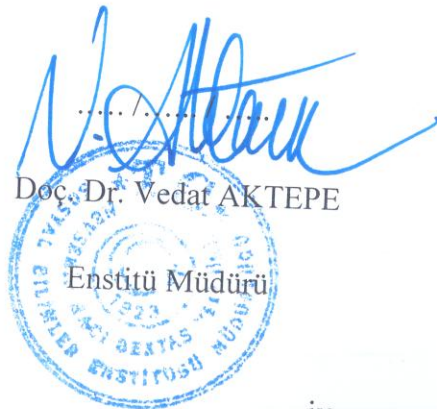 ..... /...... / .....
Doç. Dr. Vedat AKTEPE
Enstitü Müdürü
SOSYAL BİLİMLER ENSTİTÜSÜ MÜDÜRLÜĞÜ
HACI BEKTAŞ
1923